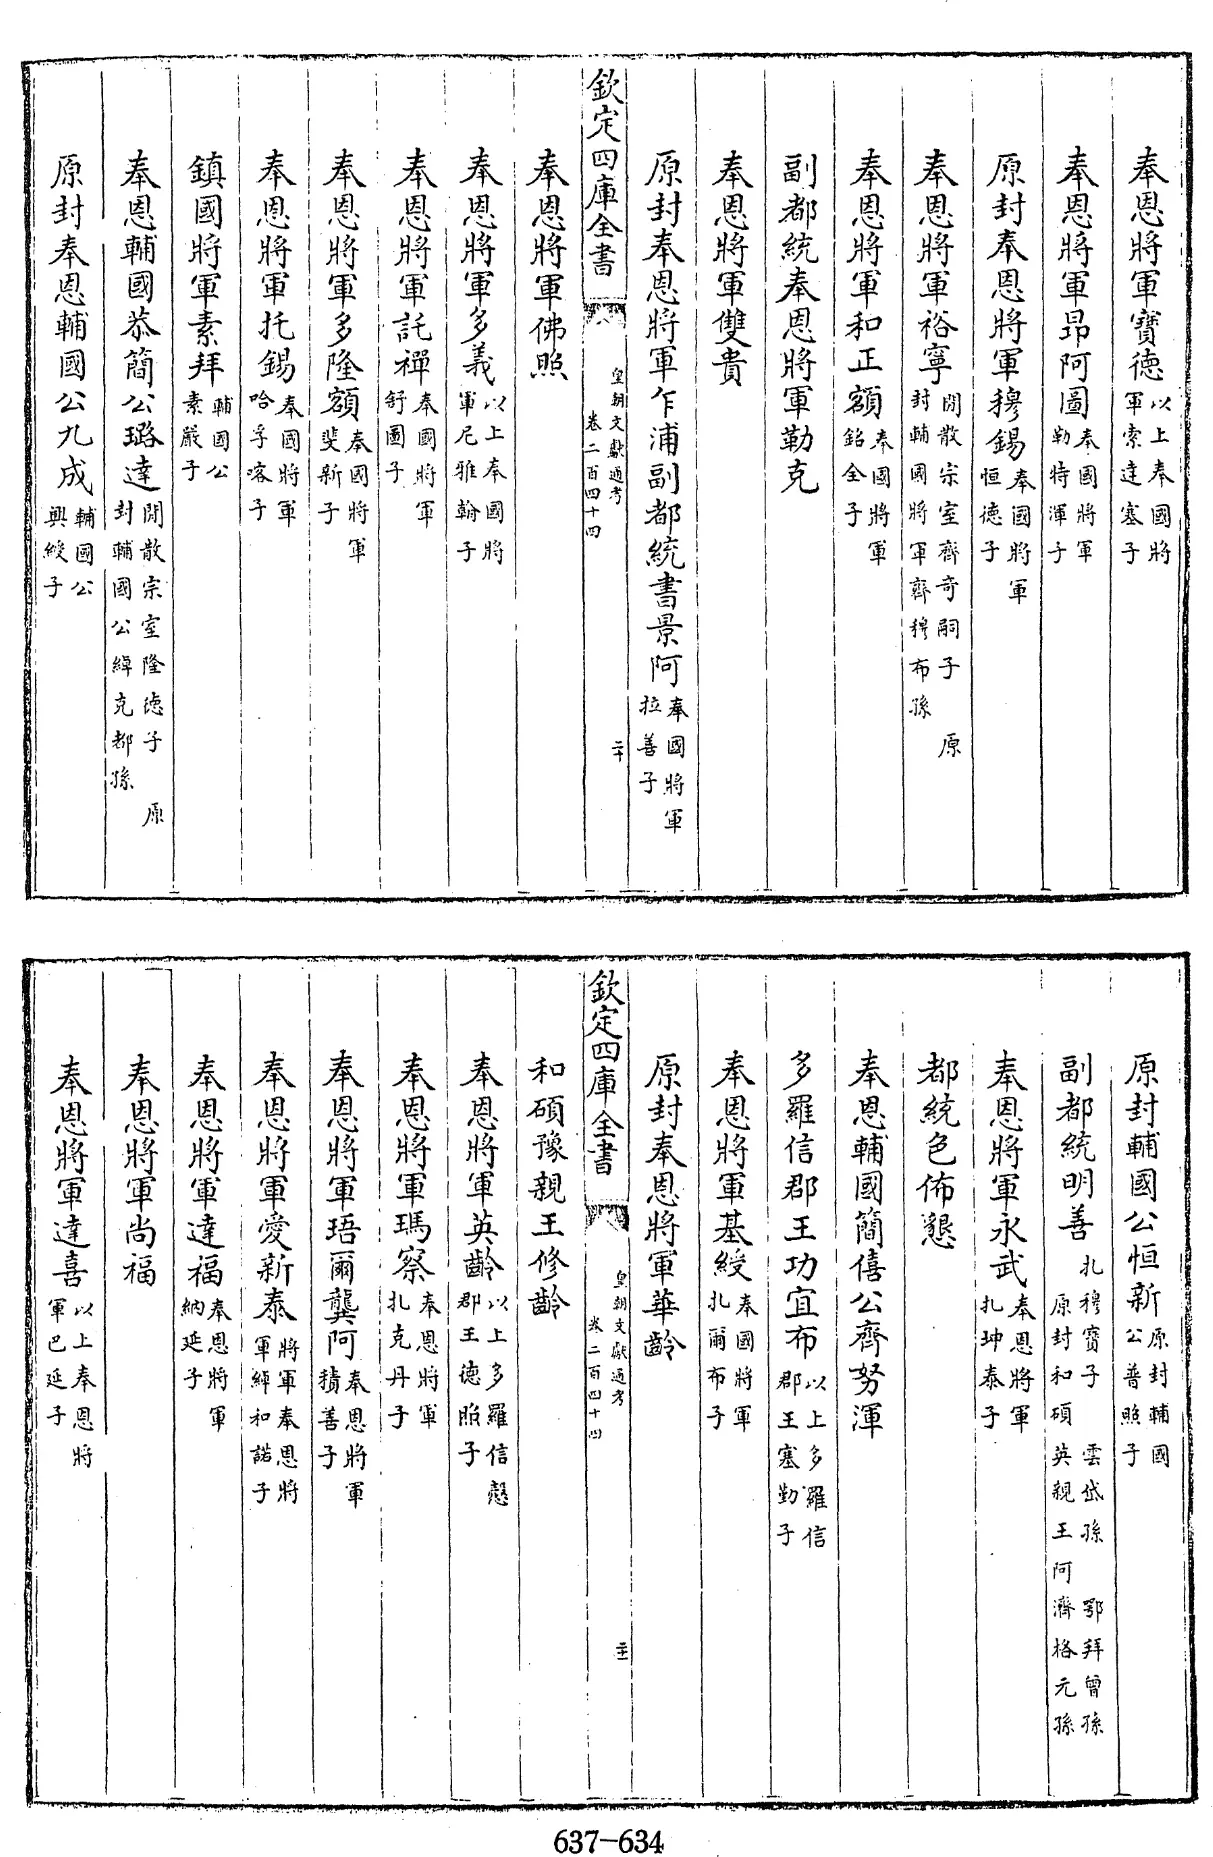 奉恩將軍寶德以上奉國將軍索達塞子
奉恩將軍昂阿圖奉國將軍勒特渾子
原封奉恩將軍穆錫奉國將軍恒德子
奉恩將軍裕寧閒散宗室齊奇嗣子 原封輔國將軍齊穆布孫
奉恩將軍和正額奉國將軍銘全子
副都統奉恩將軍勒克
奉恩將軍雙貴
原封奉恩將軍乍浦副都統書景阿奉國將軍拉善子
欽定四庫全書 皇朝文獻通考 卷二百四十四 二十
奉恩將軍佛照
奉恩將軍多義以上奉國將軍尼雅翰子
奉恩將軍託禪奉國將軍舒圖子
奉恩將軍多隆額奉國將軍斐新子
奉恩將軍托錫奉國將軍哈孚喀子
鎮國將軍素拜輔國公素嚴子
奉恩輔國恭簡公璐達閒散宗室隆德子 原封輔國公綽克都孫
原封奉恩輔國公九成輔國公興綬子
原封輔國公恒新原封輔國公普照子
副都統明善扎穆寶子 雲岱孫 鄂拜曾孫 原封和碩英親王阿濟格元孫
奉恩將軍永武奉恩將軍扎坤泰子
都統色佈懇
奉恩輔國簡僖公齊努渾
多羅信郡王功宜布以上多羅信郡王塞勤子
奉恩將軍基綬奉國將軍扎爾布子
原封奉恩將軍華齡
欽定四庫全書 皇朝文獻通考 卷二百四十四 二十一
和碩豫親王修齡
奉恩將軍英齡以上多羅信慤郡王德昭子
奉恩將軍瑪察奉恩將軍扎克丹子
奉恩將軍珸爾龔阿奉恩將軍積善子
奉恩將軍愛新泰將軍奉恩將軍綽和諾子
奉恩將軍達福奉恩將軍納延子
奉恩將軍尚福
奉恩將軍達喜以上奉恩將軍巴延子
637-634